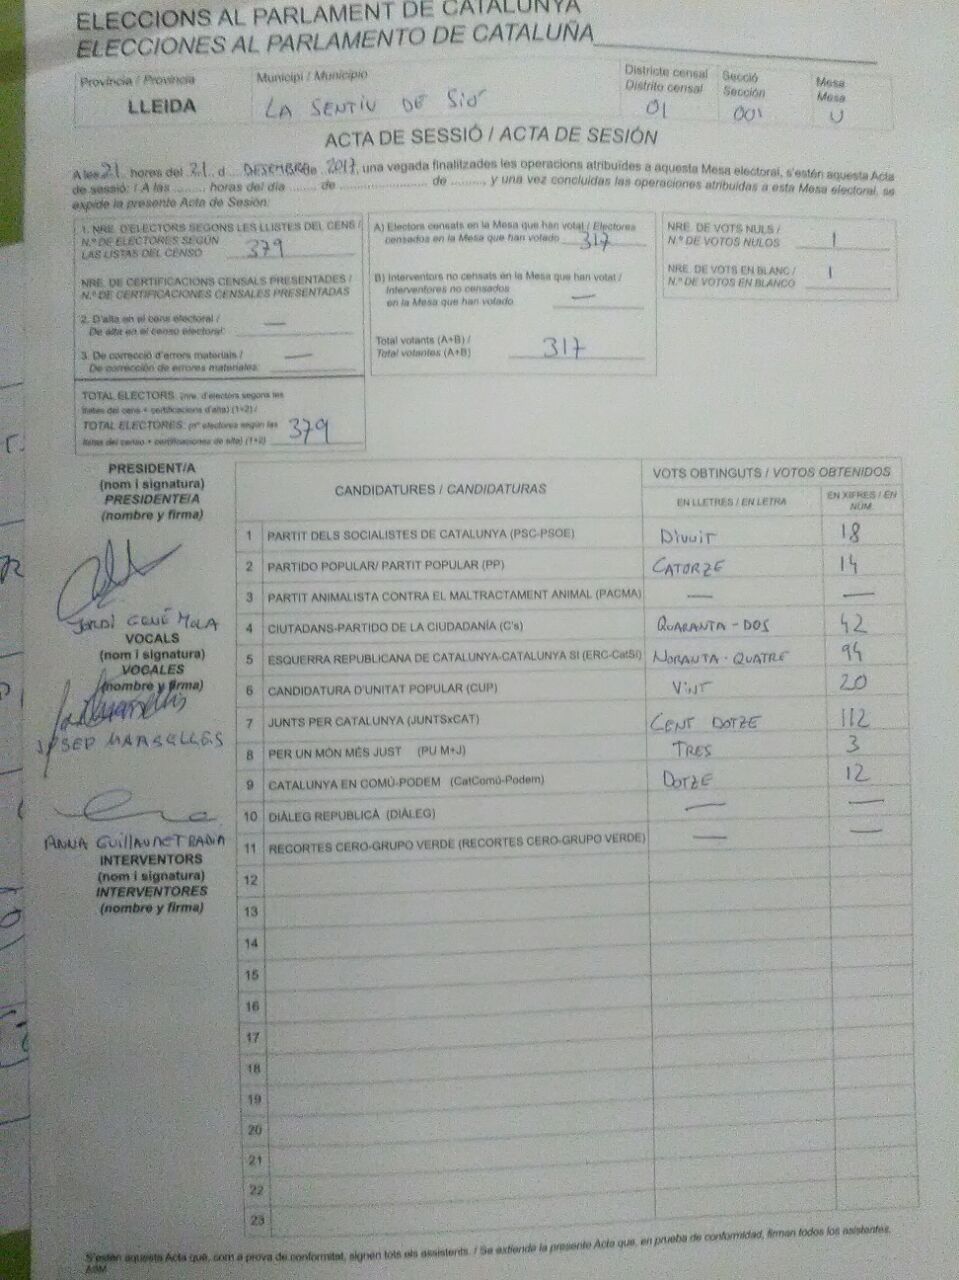 ELECCIONS AL PARLAMENT DE CATALUNYA
ELECCIONES AL PARLAMENTO DE CATALUÑA
Província / Provincia
LLEIDA
Municipi / Municipio
LA SENTIU DE SIÓ
Districte censal
Distrito censal
01
Secció
Sección
001
Mesa
Mesa
U
ACTA DE SESSIÓ / ACTA DE SESIÓN
A les 21 hores del 21, d DESEMBRE de 2017, una vegada finalitzades les operacions atribuïdes a aquesta Mesa electoral, s'estén aquesta Acta
de sessió: / A las ......... horas del día ........ de ........................ de ........., y una vez concluidas las operaciones atribuidas a esta Mesa electoral, se
expide la presente Acta de Sesión:
1. NRE. D'ELECTORS SEGONS LES LLISTES DEL CENS /
N.º DE ELECTORES SEGÚN
LAS LISTAS DEL CENSO 379
NRE. DE CERTIFICACIONS CENSALS PRESENTADES /
N.º DE CERTIFICACIONES CENSALES PRESENTADAS
2. D'alta en el cens electoral /
De alta en el censo electoral: —
3. De correcció d'errors materials /
De corrección de errores materiales: —
TOTAL ELECTORS: (nre. d'electors segons les
llistes del cens + certificacions d'alta) (1+2) /
TOTAL ELECTORES: (nº electores según las
listas del censo + certificaciones de alta) (1+2) 379
A) Electors censats en la Mesa que han votat / Electores
censados en la Mesa que han votado 317
B) Interventors no censats en la Mesa que han votat /
Interventores no censados
en la Mesa que han votado —
Total votants (A+B) /
Total votantes (A+B) 317
NRE. DE VOTS NULS /
N.º DE VOTOS NULOS 1
NRE. DE VOTS EN BLANC /
N.º DE VOTOS EN BLANCO 1
PRESIDENT/A
(nom i signatura)
PRESIDENTE/A
(nombre y firma)
JORDI GENÉ MOLA
VOCALS
(nom i signatura)
VOCALES
(nombre y firma)
JOSEP MARSELLES
ANNA GUILLAUMET
INTERVENTORS
(nom i signatura)
INTERVENTORES
(nombre y firma)
CANDIDATURES / CANDIDATURAS
VOTS OBTINGUTS / VOTOS OBTENIDOS
EN LLETRES / EN LETRA
EN XIFRES / EN NÚM.
1 PARTIT DELS SOCIALISTES DE CATALUNYA (PSC-PSOE) DIVUIT 18
2 PARTIDO POPULAR/ PARTIT POPULAR (PP) CATORZE 14
3 PARTIT ANIMALISTA CONTRA EL MALTRACTAMENT ANIMAL (PACMA) — —
4 CIUTADANS-PARTIDO DE LA CIUDADANÍA (C's) QUARANTA-DOS 42
5 ESQUERRA REPUBLICANA DE CATALUNYA-CATALUNYA SÍ (ERC-CatSí) NORANTA-QUATRE 94
6 CANDIDATURA D'UNITAT POPULAR (CUP) VINT 20
7 JUNTS PER CATALUNYA (JUNTSxCAT) CENT DOTZE 112
8 PER UN MÓN MÉS JUST (PU M+J) TRES 3
9 CATALUNYA EN COMÚ-PODEM (CatComú-Podem) DOTZE 12
10 DIÀLEG REPUBLICÀ (DIÀLEG) — —
11 RECORTES CERO-GRUPO VERDE (RECORTES CERO-GRUPO VERDE) — —
12
13
14
15
16
17
18
19
20
21
22
23
S'estén aquesta Acta que, com a prova de conformitat, signen tots els assistents. / Se extiende la presente Acta que, en prueba de conformidad, firman todos los asistentes.